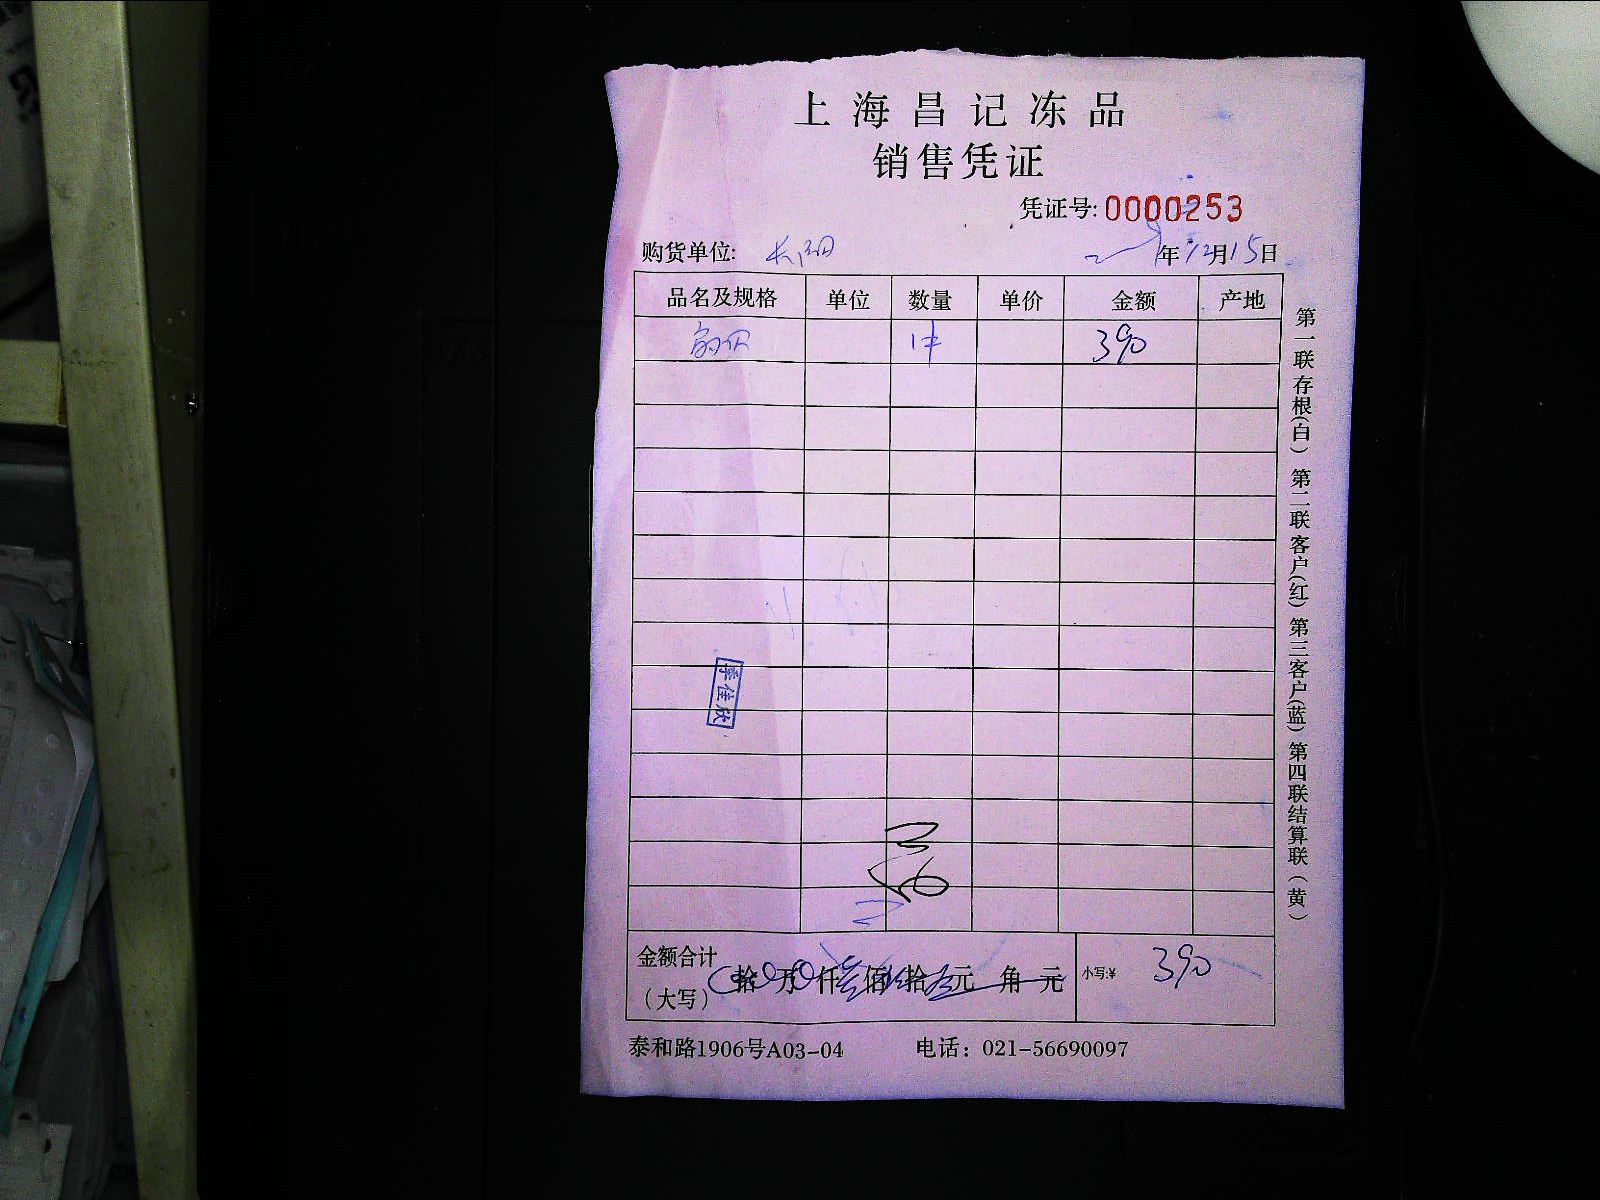 上海昌记冻品
销售凭证
凭证号: 0000253
购货单位: 年12月15日
品名及规格 单位 数量 单价 金额 产地
1件 390
季佳欣
金额合计
(大写) 拾 万 仟 佰 拾 元 角 元
小写:¥ 390
泰和路1906号A03-04 电话：021-56690097
第一联存根(白) 第二联客户(红) 第三客户(蓝) 第四联结算联(黄)